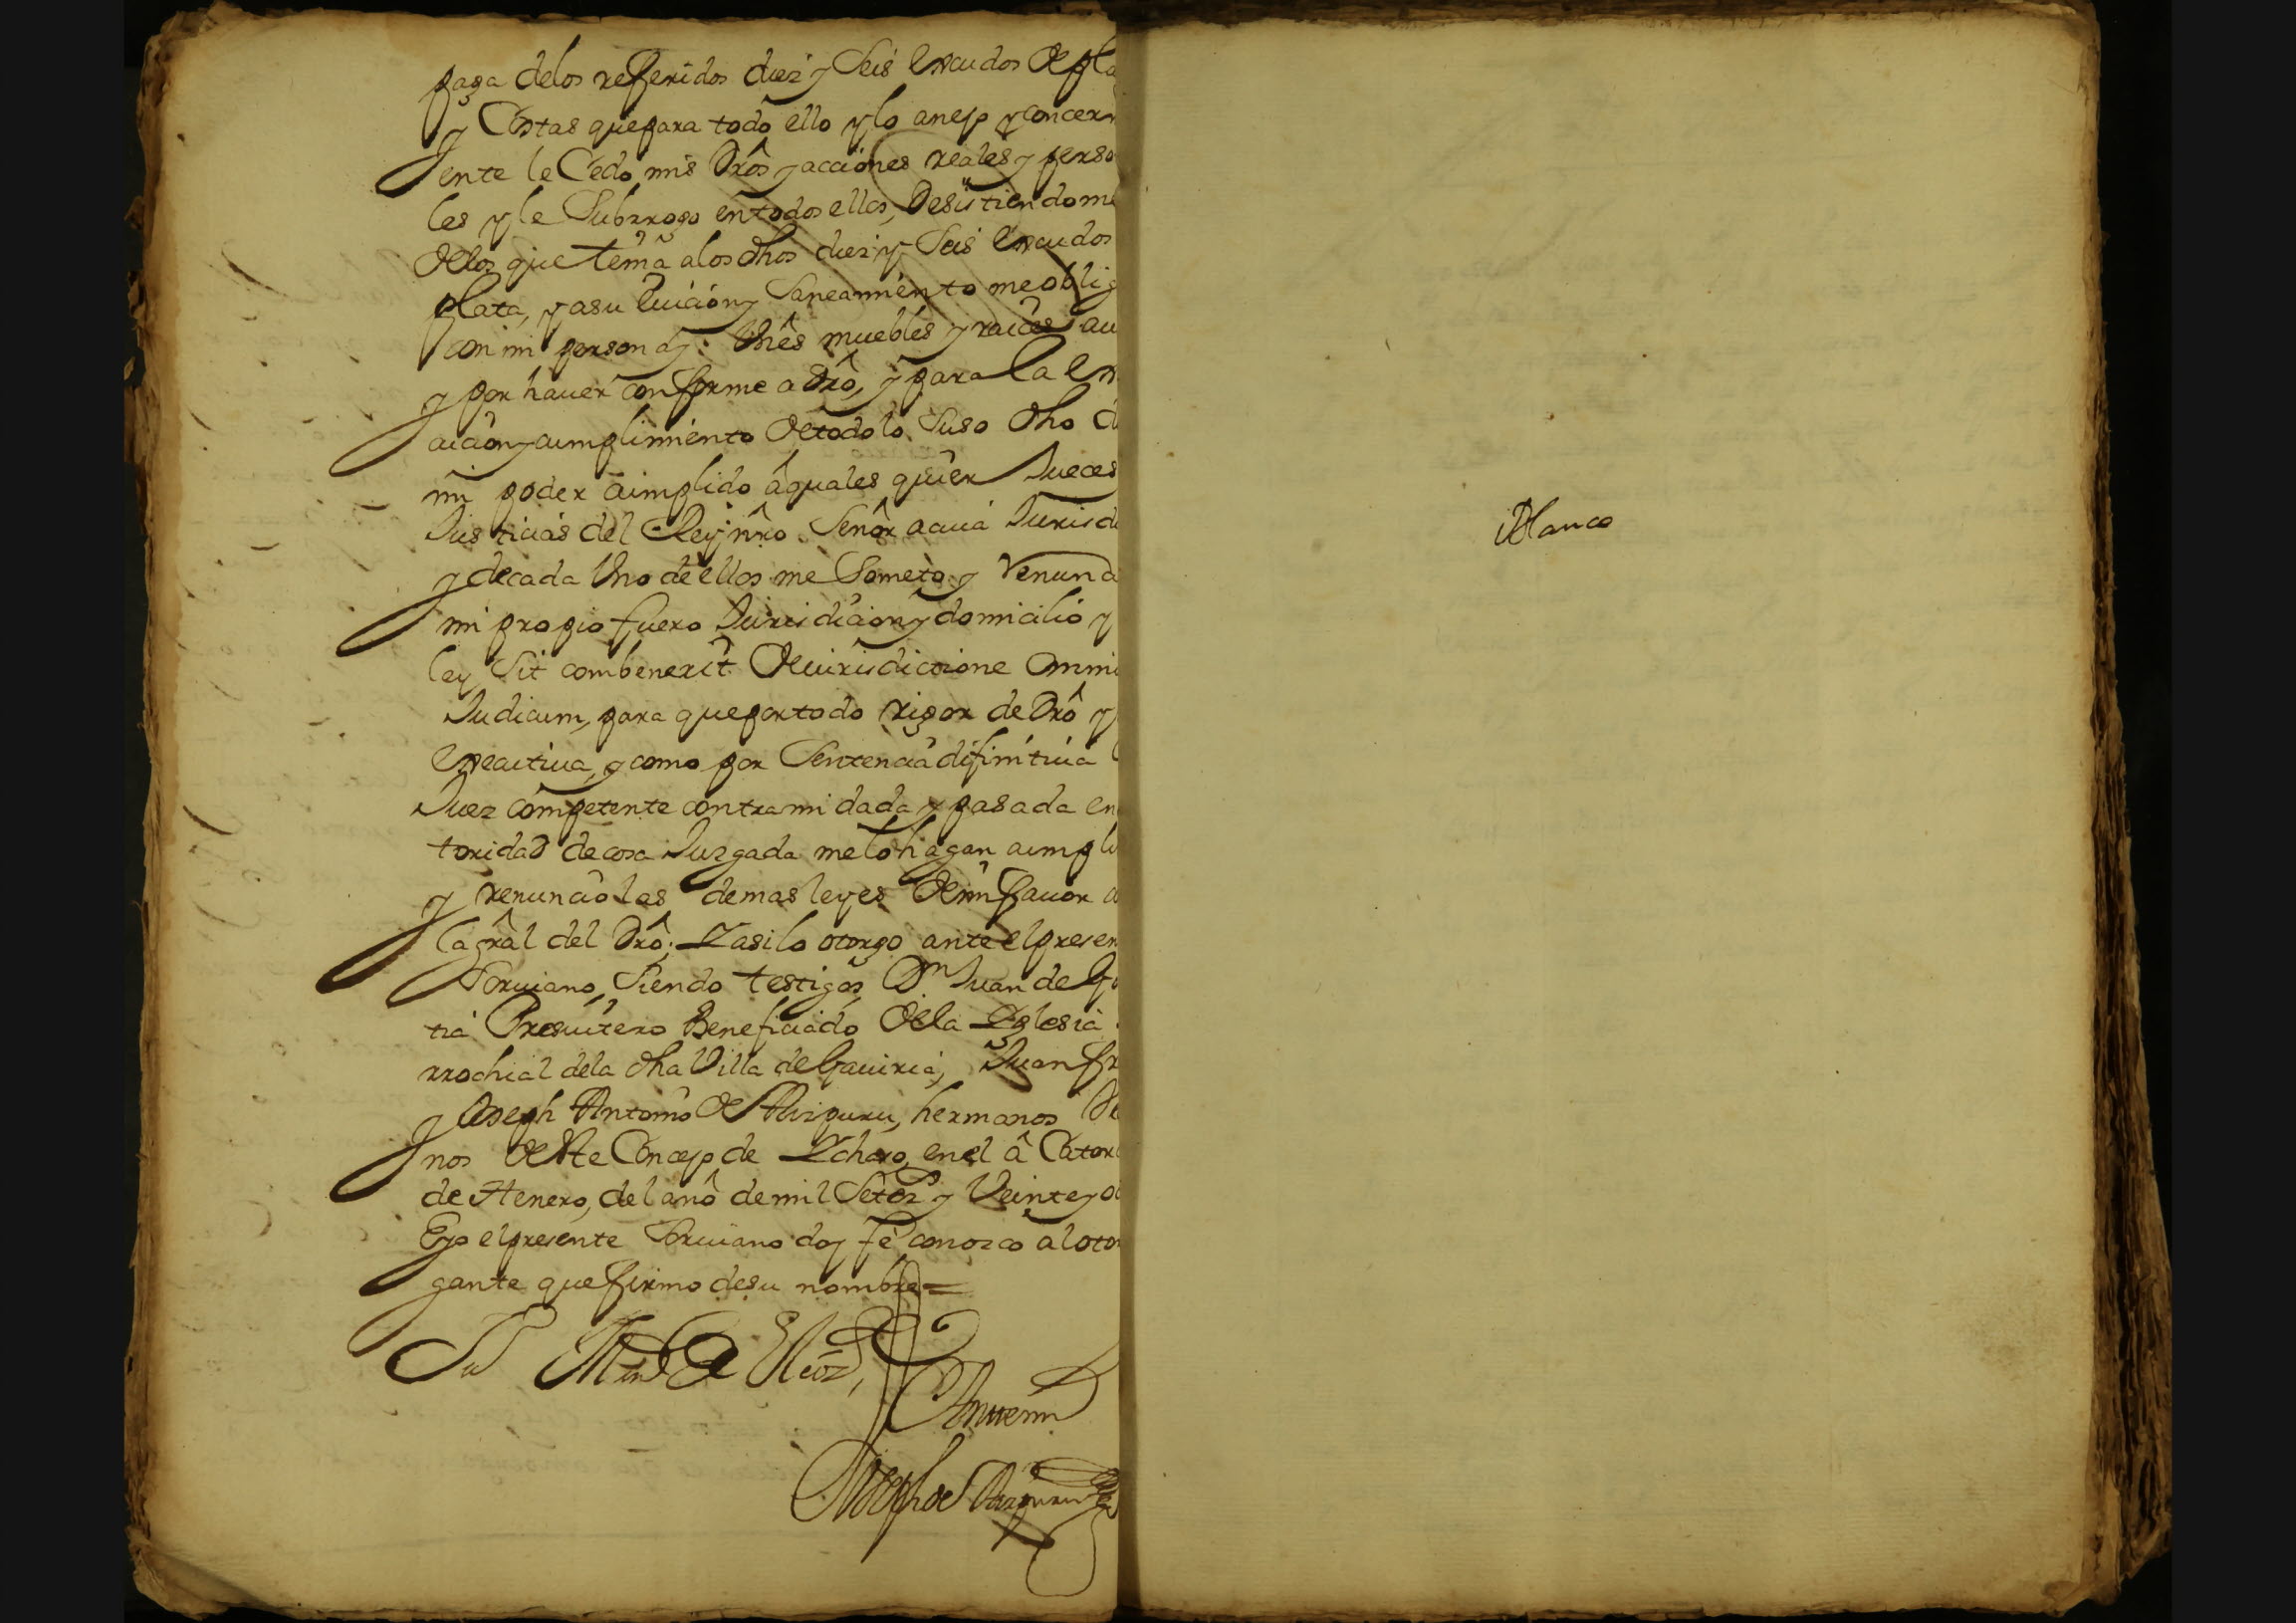 paga delos referidos diez y seis escudos de pla
y Costas que para todo ello y lo anejo y concern
iente le Cedo mis Drôs y acciones reales y perso
les y le Subrrogo en todos ellos, Desistiendome
delos que tenia a los dhos diez y seis escudos
plata, y asu euicion y Saneamiento me oblig
con mi persona y vienês muebles y raices au
y por hauer conforme a Drô, y para la ex
cucion y cumplimiento de todo lo suso dho d
mi poder cumplido âquales quier Jueces
Justicias del Rey nrô Señor acuia Jurisdi
y de cada Uno de ellos me Someto y renunci
mi propio fuero Jurisdicion y domicilio y
ley Sit combenerit de iurisdictione Omni
Judicum, para que por todo rigor de Drô y
executiua, y como por Sentencia difinitiua
Juez competente contra mi dada y pasada en
toridad de cosa Juzgada me lo hagan cumpli
y renuncio las demas leyes de mi fauor
la grâl del Drô. Y asi lo otorgo ante el presen
Scriuano, Siendo testigos Dn Juan de
tia Presuitero Beneficiado de la Yglesia
rrochial dela dha Villa de Gauiria, Juan fr
y Joseph Antonio de Aizpuru, hermanos Ve
nos deste Concejo de Ychaso, en el â Catorc
de Henero, del anô de mil Setez.s y Veinte y o
E yo el presente Scriuano doy fe conozco al otor
gante que firmo de su nombre =
Antemi
Joseph de Aizpuru
Blanco